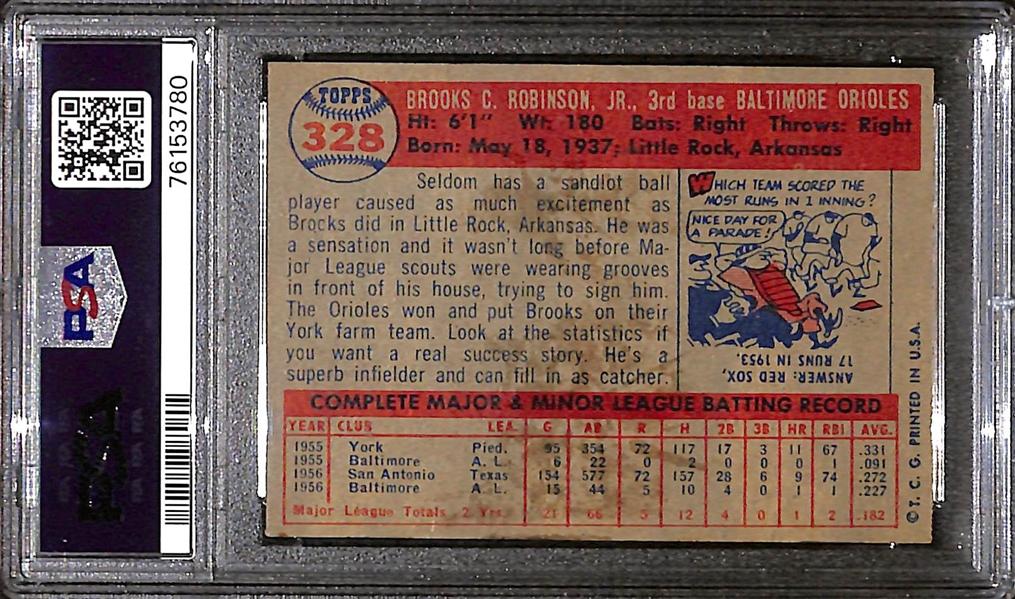 76153780
PSA
TOPPS
328
BROOKS C. ROBINSON, JR., 3rd base BALTIMORE ORIOLES
Ht: 6'1" Wt: 180 Bats: Right Throws: Right
Born: May 18, 1937; Little Rock, Arkansas
Seldom has a sandlot ball
player caused as much excitement as
Brooks did in Little Rock, Arkansas. He was
a sensation and it wasn't long before Ma-
jor League scouts were wearing grooves
in front of his house, trying to sign him.
The Orioles won and put Brooks on their
York farm team. Look at the statistics if
you want a real success story. He's a
superb infielder and can fill in as catcher.
WHICH TEAM SCORED THE
MOST RUNS IN 1 INNING?
NICE DAY FOR
A PARADE!
ANSWER: RED SOX,
17 RUNS IN 1953.
COMPLETE MAJOR & MINOR LEAGUE BATTING RECORD
YEAR CLUB LEA. G AB R H 2B 3B HR RBI AVG.
1955 York Pied. 95 354 72 117 17 3 11 67 .331
1955 Baltimore A. L. 6 22 0 2 0 0 0 1 .091
1956 San Antonio Texas 154 577 72 157 28 6 9 74 .272
1956 Baltimore A. L. 15 44 5 10 4 0 1 1 .227
Major League Totals 2 Yrs. 21 66 5 12 4 0 1 2 .182
© T. C. G. PRINTED IN U.S.A.